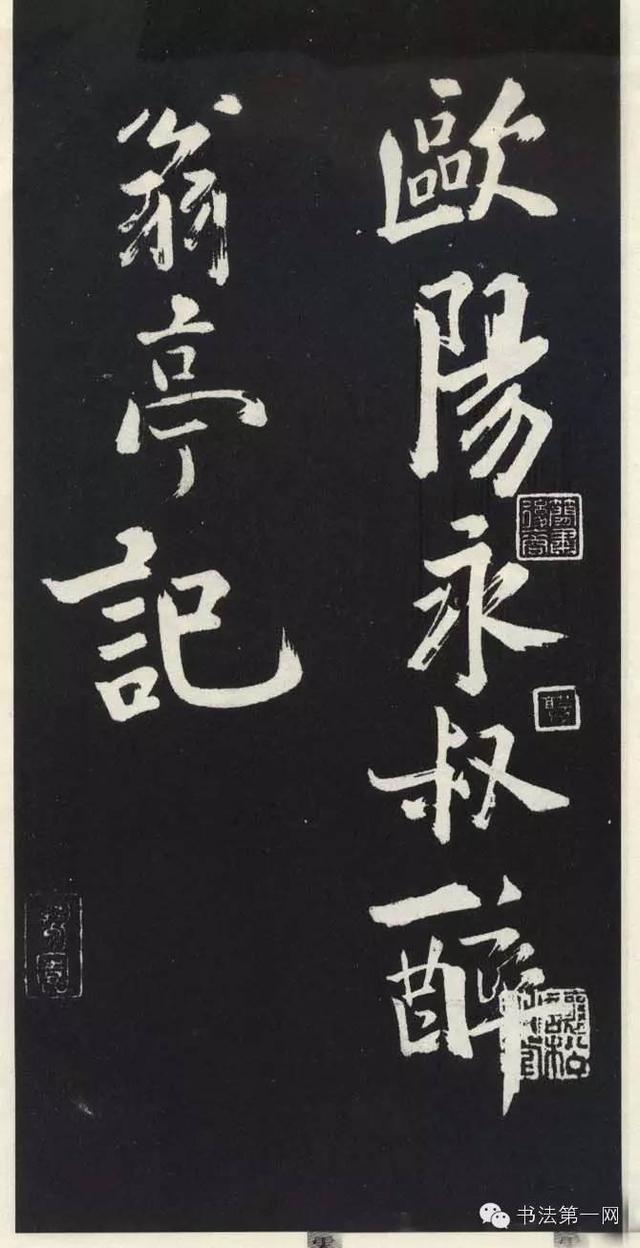 歐陽永叔醉
翁亭記
书法第一网